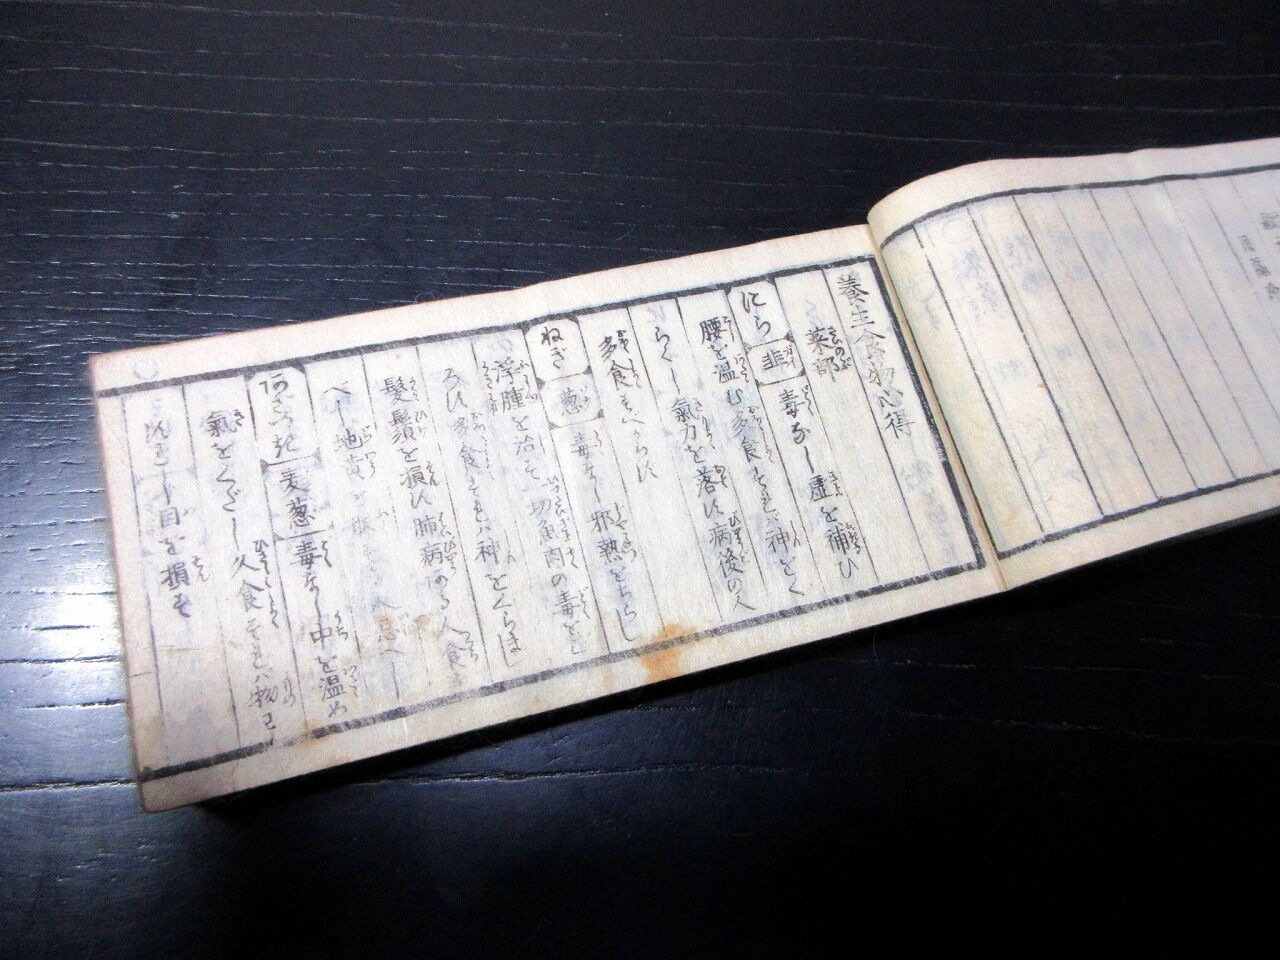 養生食物心得
菜部
にら 韭 毒なし虚を補ひ
腰を温む多食すれハ神をく
らくし氣力を落す病後の人
多食すべからず
ねぎ 葱 毒なし邪熱をちらし
浮腫を治す一切魚肉の毒をし
ろす多食すれハ神をくらまし
髮鬚を損ず肺病ある人食す
べ 地黄を服する人忌べし
麦葱 毒なし中を温め
氣をくだし久食すれハ物わ
すれし目を損ず